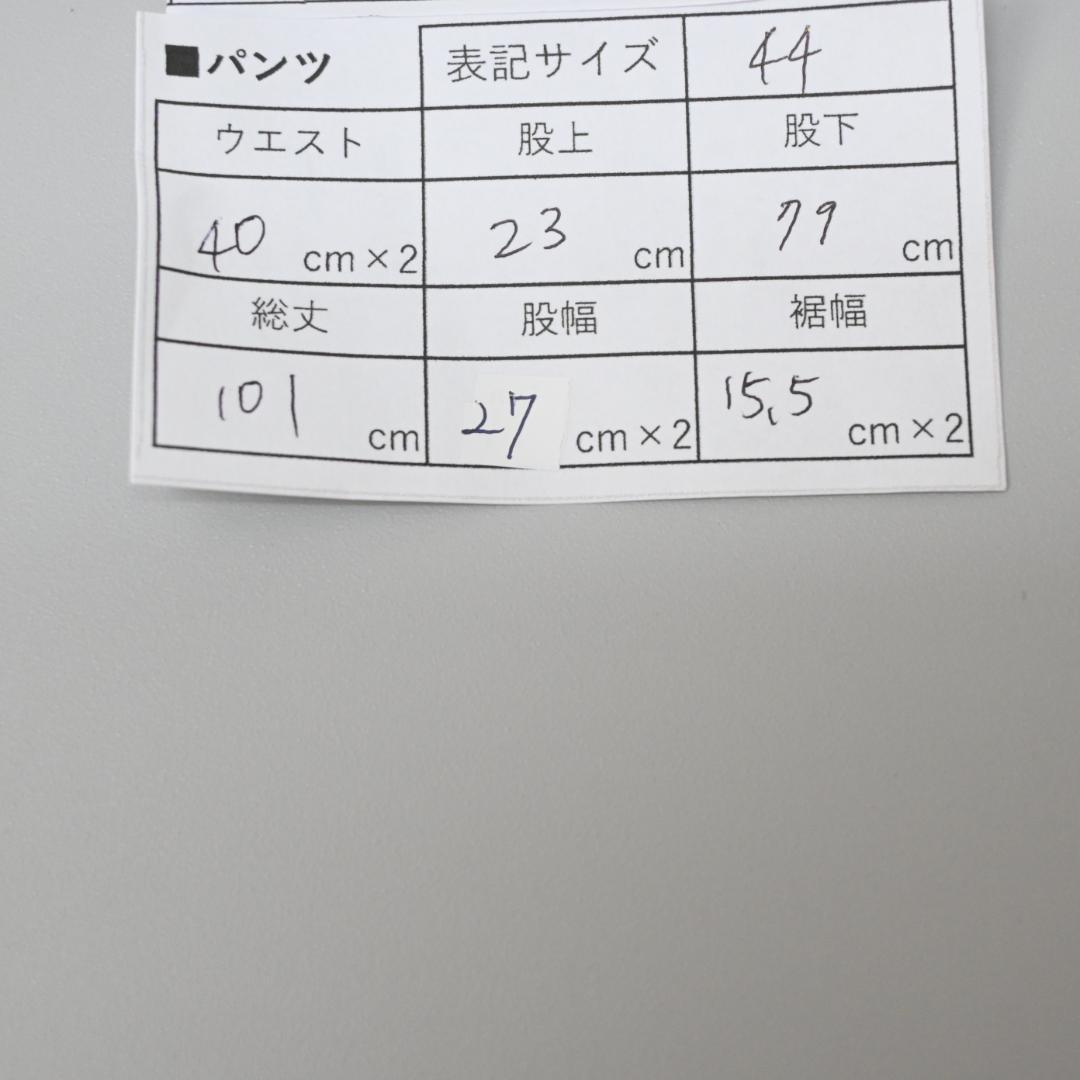 ■パンツ 表記サイズ 44
ウエスト 股上 股下
40 cm×2 23 cm 79 cm
総丈 股幅 裾幅
101 cm 27 cm×2 15.5 cm×2